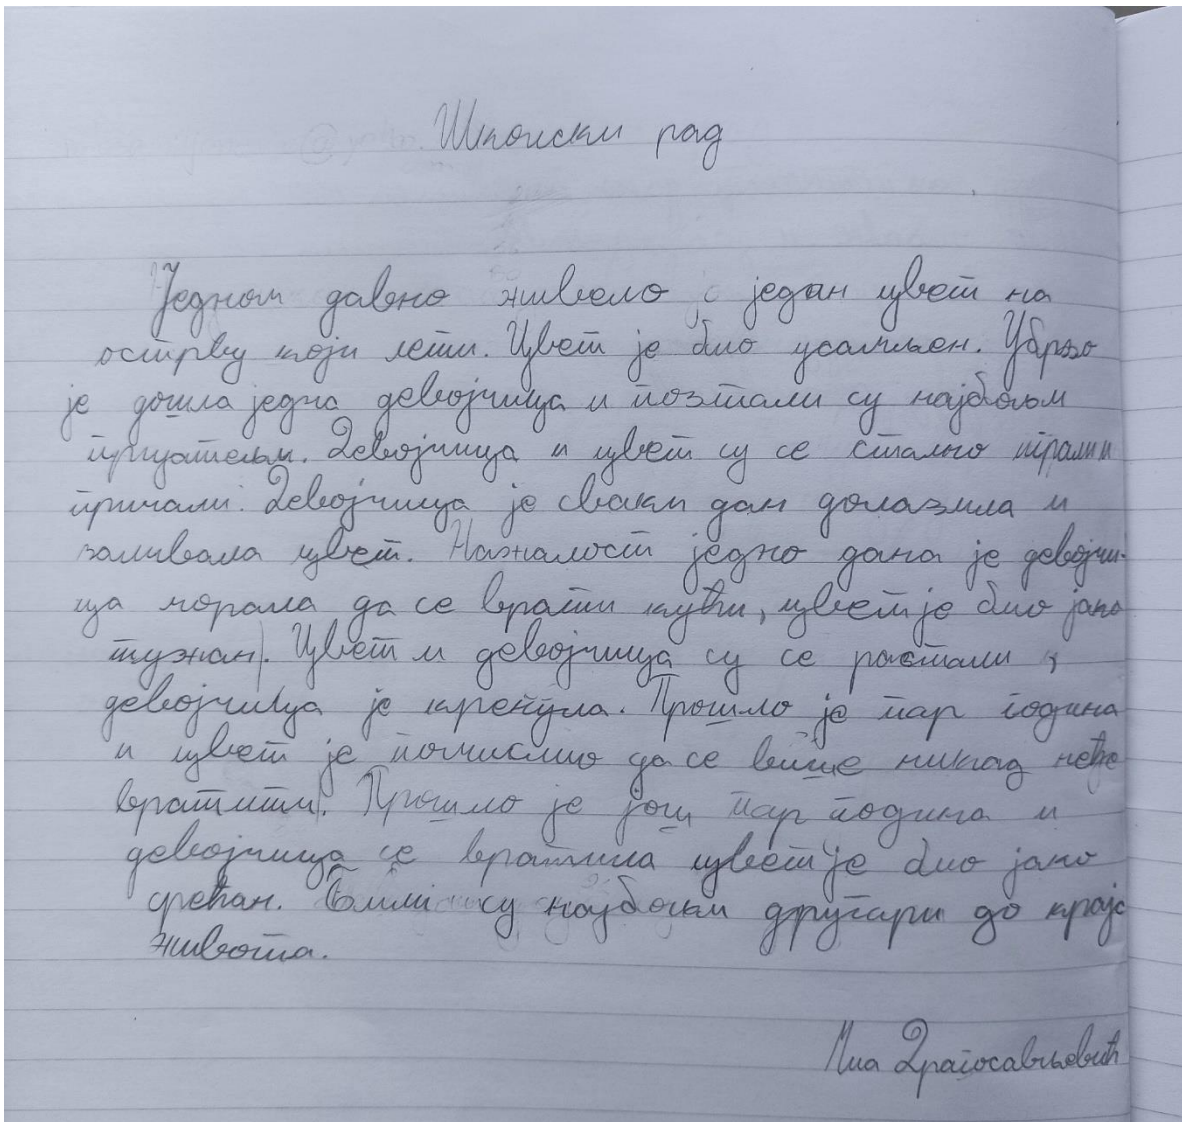 Школски рад
Једном давно живело је један цвет на
острву који лети. Цвет је био усамљен. Убрзо
је дошла једна девојчица и позтали су најбољи
пријатељи. Девојчица и цвет су се стално играли и
причали. Девојчица је сваки дан долазила и
заливала цвет. Нажалост једно дана је девојчи-
ца морала да се врати кући, цвет је био јако
тужан. Цвет и девојчица су се растали и
девојчица је кренула. Прошло је пар година
и цвет је помислио да се више никад неће
вратити. Прошло је још пар година и
девојчица се вратила цвет је био јако
срећан. Били су најбољи другари до краја
живота.
Миа Драгосављевић